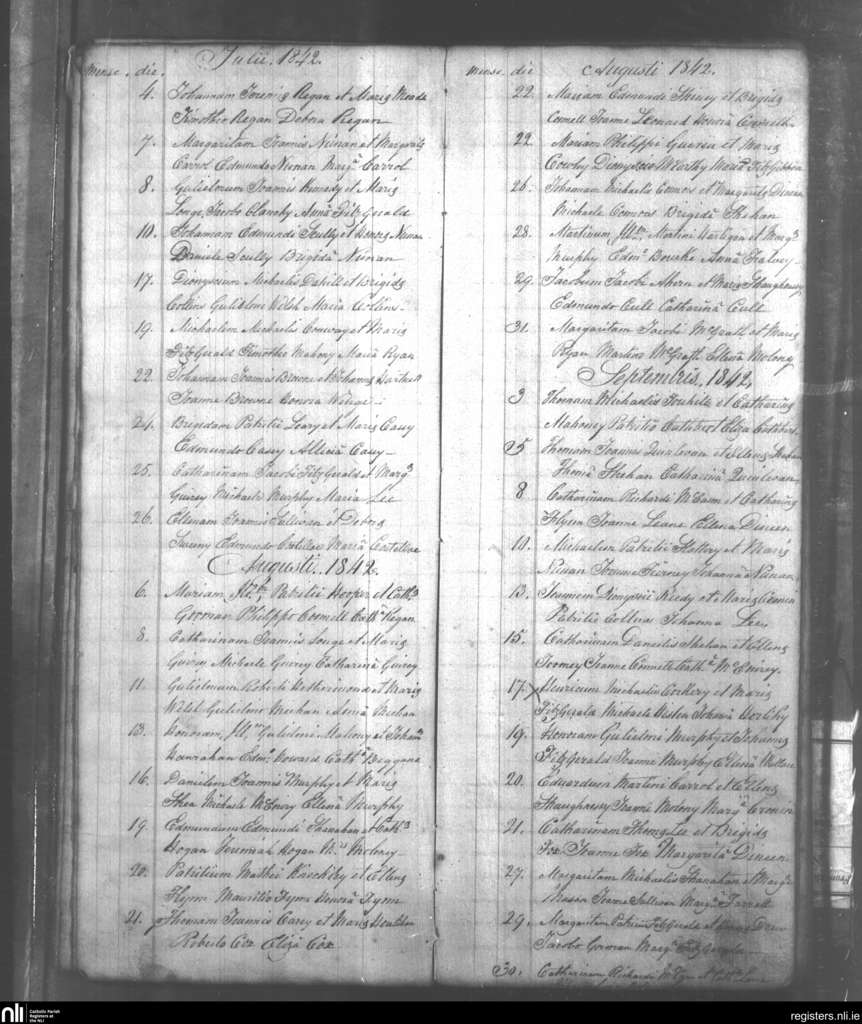 Julii. 1842.
Mense. die.
4. Johannam Jeremiæ Regan et Mariæ Meade
Timotheo Regan Debora Regan
7. Margaritam Joannis Nunan et Margaritæ
Carrol Edmundo Nunan Marg.â Carrol
8. Gulielmum Joannis Kennedy et Mariæ
Longe, Jacobo Clanchy Annâ Fitz Gerald
10. Johannam Edmundi Scully et Honoræ Nunan
Daniele Scully Brigidâ Nunan
17. Dionysium Michaelis Dahill et Brigidæ
Collins Gulielmo Welsh Maria Collins.
19. Michaelem Michaelis Conway et Mariæ
FitzGerald Timotheo Mahony Mariâ Ryan
22. Johannam Joannis Browne et Johannæ
Joanne Browne Honora
24. Brigidam Patritii Leary et Mariæ Casey
Edmundo Casey Alliciâ Casey
25. Catharinam Jacobi FitzGerald et Marg.
Guirey Michaele Murphy Maria Lee
26. Ellenam Joannis Sullivan et Deboræ
Sweeny Edmundo Mariâ
Augusti. 1842.
6. Mariam, Patritii Hooper et Cath.
Gorman Philippo Connell Cath.â Regan
8. Catharinam Joannis Longe et Mariæ
Guirey, Michaele Guirey Catharinâ Guirey
11. Gulielmum Roberti et Mariæ
Welsh Gulielmo Meehan Annâ Meehan
13. Honoram, Gulielmi Mullony et
Hanrahan Edm. Howard Cath.â
16. Danielem Joannis Murphy et Mariæ
Shea Michaele McEnery Ellenâ Murphy
19. Edmundum Edmundi Shanahan et Cath.
Hogan Jeremiah Hogan Moloney
20. Patritium Mathei et Ellenæ
Flynn Mauritio Flynn Honorâ Flynn
21. Thomam Joannis Carey et Mariæ
Roberto Cox Elizâ Cox
Mense. die
Augusti 1842.
22. Mariam Edmundi et Brigidæ
Connell Joanne Leonard Honorâ Connell
22. Mariam Philippi Guerin et Mariæ
Cowhy Dionysio McCarthy FitzGibbon
26. Johannam Michaelis Connors et Margaritæ Dineen
Michaele Connors Brigidâ Shehan
28. Martinum, Martini Hartigan et Marg.
Murphy Edm. Bourke Annâ
29. Jacobum Jacobi Ahern et Mariæ Shaughnessy
Edmundo Catharinâ
31. Margaritam Jacobi McGrath et Mariæ
Ryan Martino McGrath Ellenâ Molony
Septembris, 1842,
3 Thomam Michaelis et Catharinæ
Mahoney Patritio Cuthbert Eliza Cuthbert
5 Thomam Joannis Quinlivan et Ellenæ Shehan
Thomâ Shehan Catharinâ Quinlivan
8 Catharinam Richardi McCann et Catharinæ
Flynn Joanne Leane Ellena Dineen
10. Michaelem Patritii Slattery et Mariæ
Nunan Joanne Kearney Johannâ Nunan
13. Joannem Dionysii Reedy et Mariæ
Patritio Collins Johanna Lee,
15. Catharinam Danielis Shehan et Ellenæ
Toomey Joanne Connell Cath.â McEnirey.
17. Henricum Michaelis Corkery et Mariæ
FitzGerald Michaele Johannâ
19. Honoram Gulielmi Murphy et Johannæ
FitzGerald Joanne Murphy Ellenâ
20. Eduardum Martini Carrol et Ellenæ
Shaughnessy Joanne Molony Marg.â Cronin
21. Catharinam Thomæ Lee et Brigidæ
Fox Joanne Fox Margaritâ Dineen
27. Margaritam Michaelis Shanahan et Marg.
Joanne Sullivan Marg.â Farrell
29. Margaritam Patritii FitzGerald et
Jacobo Gorman Marg.â FitzGerald
30. Catharinam Richardi et
nli
Catholic Parish
Registers at
the NLI
registers.nli.ie